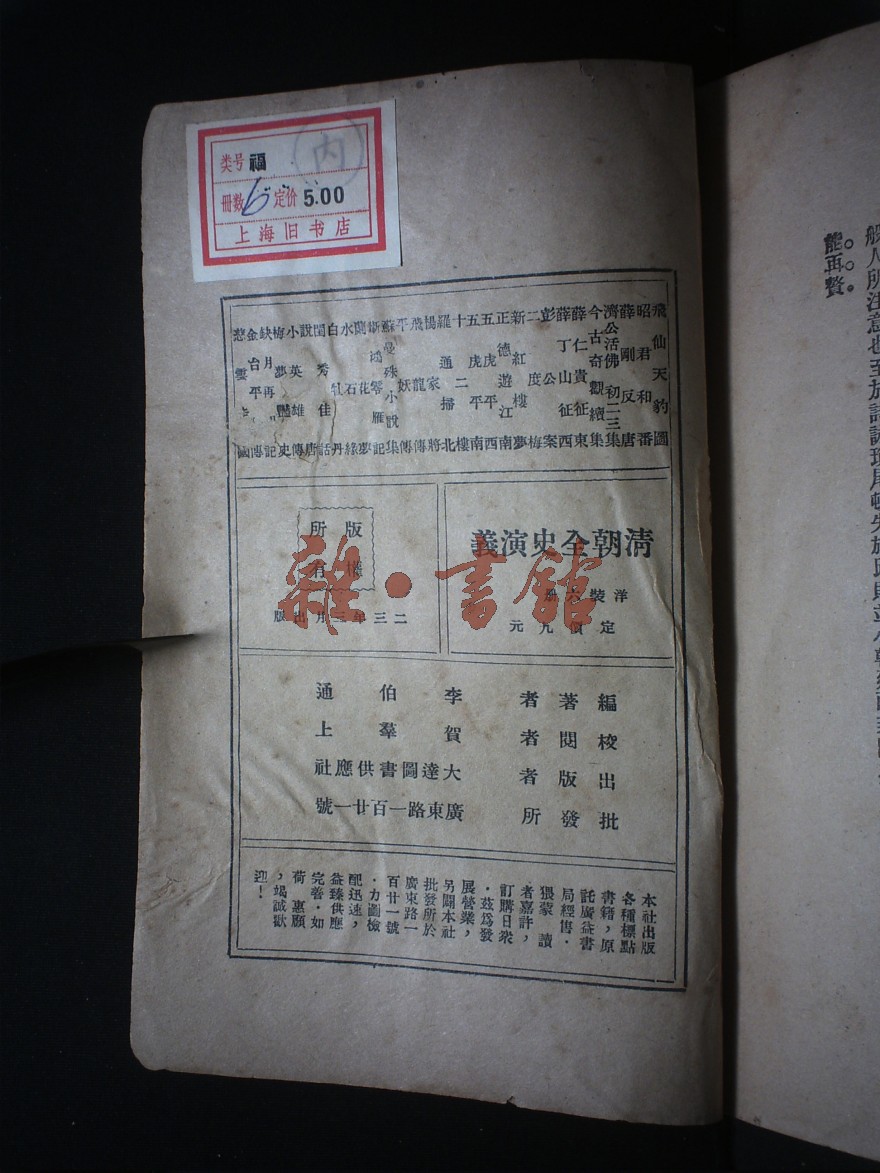 类号 福 内
冊数 6 定价 5.00
上海旧书店
飛仙天豹圖
昭君和番
薛剛反唐
濟公活佛初二三集
今古奇觀續集
薛仁貴征東
薛丁山征西
彭公案
二度梅
新紅樓夢
正德遊江南
五虎平西
五虎平南
十二樓
羅通掃北
楊家將
飛龍傳
平妖傳
蘇曼殊小說集
斷鴻零雁記
蘭花夢
水石緣
白牡丹
閨秀佳話
說唐
小英雄傳
梅
缺月再圓記
金台平
清朝全史演義
洋裝六册
定價九元
版權所有
二三年三月出版
編著者 李伯通
校閱者 賀羣上
出版者 大達圖書供應社
批發所 廣東路一百廿一號
本社出版
各種標點
書籍,原
託廣益書
局經售.
猥蒙 讀
者嘉許,
訂購日衆
.茲爲發
展營業,
另闢本社
批發所於
廣東路一
百廿一號
.力圖檢
配迅速,
益臻供應
完善.如
荷 惠顧
,竭誠歡
迎!
雜·書館
般人所注意也至於
能再贅